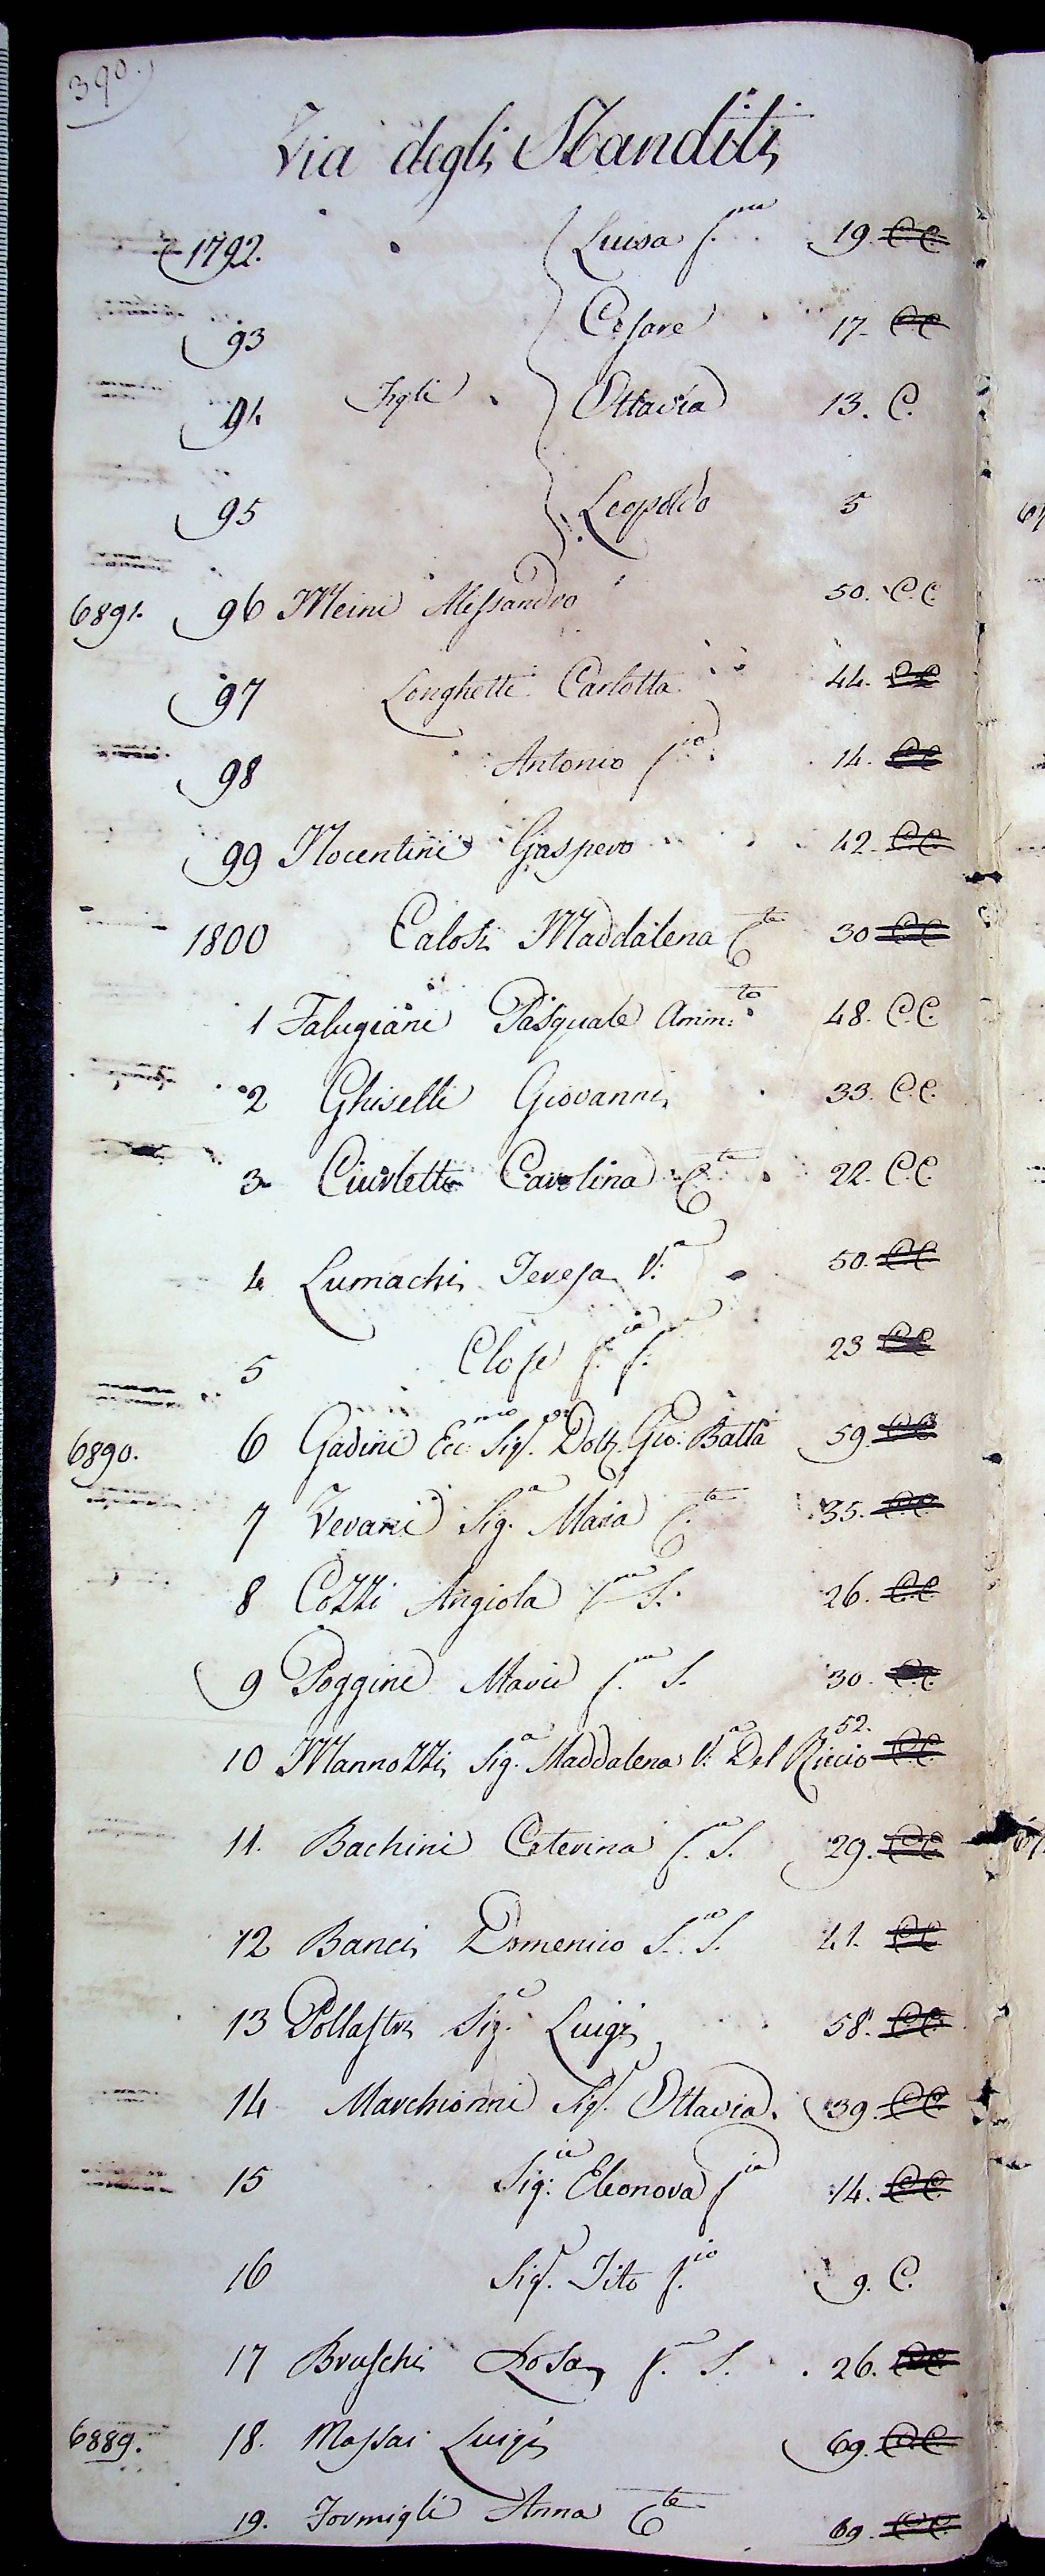 390.
Via degli Standiti
1792. Luisa f.na 19. C.C.
93 Cesare 17. C.C.
94 Figli Ottavia 13. C.
95 Leopoldo 5
6891. 96 Meini Alessandro 50. C.C.
97 Longhetti Carlotta 44. C.C.
98 Antonio f.io 14. C.C.
99 Nocentini Gaspero 42. C.C.
1800 Calosi Maddalena C.te 30 C.C.
1 Falugiani Pasquale Amm.to 48. C.C.
2 Ghiselli Giovanni 33. C.C.
3 Ciurletti Carolina C.te 22. C.C.
4 Lumachi Teresa V.a 50. C.C.
5 Clofe f.ia f. 23 C.C.
6890. 6 Gadini Ecc.mo Sig.r Dott. Gio: Batta 59. C.C.
7 Verani Sig.a Maria C.te 35. C.C.
8 Cozzi Angiola S. 26. C.C.
9 Poggini Maria S. 30. C.C.
10 Mannozzi Sig.a Maddalena V.a Del Riccio 52. C.C.
11. Bachini Caterina S. 29. C.C.
12 Banci Domenico S. 41. C.C.
13 Pollastri Sig. Luigi 58. C.C.
14 Marchionni Sig. Ottavia 39. C.C.
15 Sig.ra Eleonora f.ia 14. C.C.
16 Sig.r Tito f.io 9. C.
17 Bruschi Rosa S. 26. C.C.
6889. 18. Massai Luigi 69. C.C.
19. Formigli Anna C.te 69. C.C.